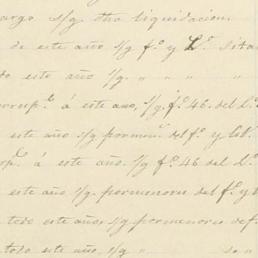 argo s/g. otra liquidacion.
de este año s/g fº. y Lº. sita
do este año s/g. " " "
orresp.te á este año, s/g. fº. 46. del Lº.
este año s/g pormenr. del fº. y Lib.
sp.te á este año. s/g fº. 46 del Lº.
este año s/g. pormenores del fº. y L
todo este año, s/g pormenores de f.
todo este año, s/g " "